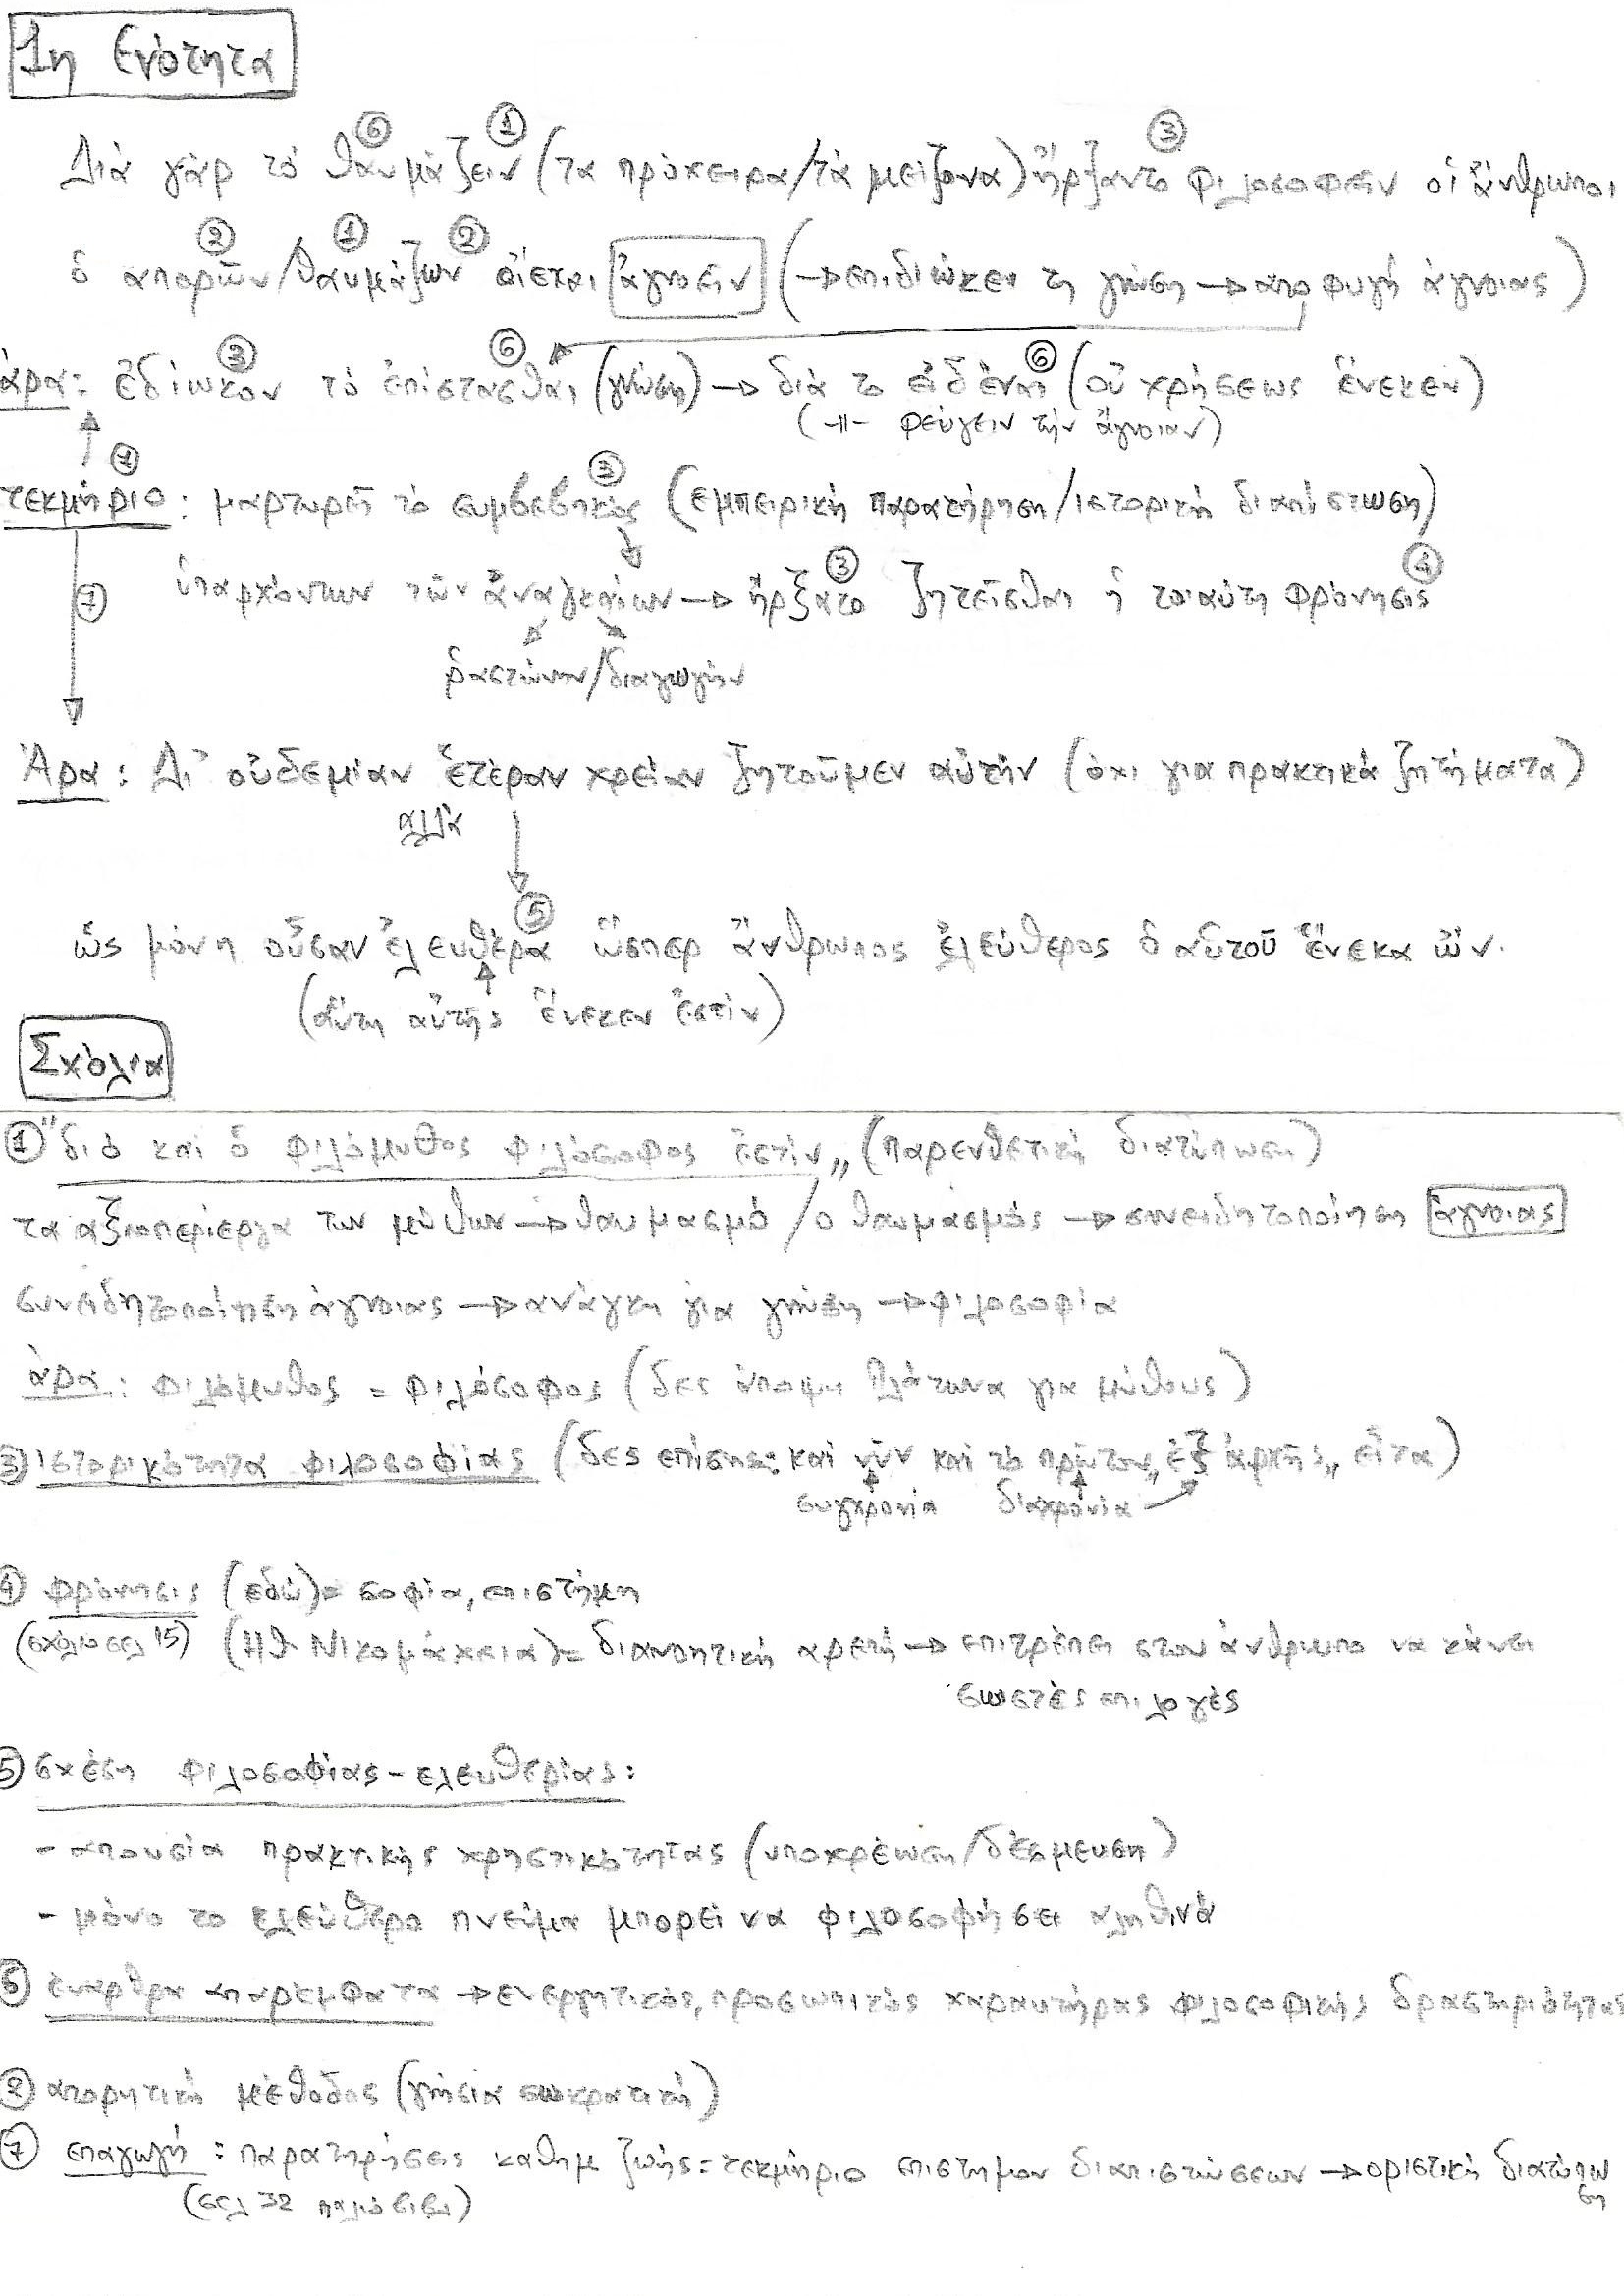 1η Ενότητα
⑥ ① ③
Διά γάρ τό θαυμάζειν (τα πρόχειρα/τά μείζονα) ἤρξαντο φιλοσοφεῖν οἱ ἄνθρωποι
② ① ②
ὁ απορῶν/θαυμάζων οἴεται ἀγνοεῖν (→ επιδιώκει τη γνώση → αποφυγή άγνοιας)
③ ⑥ ⑥
άρα: ἐδίωκον τό ἐπίστασθαι (γνώση) → διά το εἰδέναι (οὐ χρήσεως ἕνεκεν)
(-//- φεύγειν τήν ἄγνοιαν)
③
τεκμήριο: μαρτυρεῖ τό συμβεβηκός (εμπειρική παρατήρηση/ιστορική διαπίστωση)
③ ④
⑦ ὑπαρχόντων τῶν ἀναγκαίων → ἤρξατο ζητεῖσθαι ἡ τοιαύτη φρόνησις
ῥαστώνην/διαγωγήν
Άρα: Δι' οὐδεμίαν ἑτέραν χρείαν ζητοῦμεν αὐτήν (όχι για πρακτικά ζητήματα)
αλλά
⑤
ὡς μόνη οὖσαν ἐλευθέρα ὥσπερ ἄνθρωπος ἐλεύθερος ὁ αὑτοῦ ἕνεκα ὤν.
(αὕτη αὑτῆς ἕνεκεν ἐστίν)
Σχόλια
① "διό καί ὁ φιλόμυθος φιλόσοφος ἐστίν" (παρενθετική διατύπωση)
τα αξιοπερίεργα των μύθων → θαυμασμό / ο θαυμασμός → συνειδητοποίηση άγνοιας
συνειδητοποίηση άγνοιας → ανάγκη για γνώση → φιλοσοφία
άρα: φιλόμυθος = φιλόσοφος (δες άποψη Πλάτωνα για μύθους)
③ ιστορικότητα φιλοσοφίας (δες επίσης: καί νῦν καί τό πρῶτον„ ἐξ ἀρχῆς„ εἶτα)
συγχρονία διαχρονία
④ φρόνησις (εδώ) = σοφία, επιστήμη
(σχόλιο σελ 15) (Ηθ Νικομάχεια) = διανοητική αρετή → επιτρέπει στον άνθρωπο να κάνει
σωστές επιλογές
⑤ σχέση φιλοσοφίας - ελευθερίας:
- απουσία πρακτικής χρηστικότητας (υποχρέωση/δέσμευση)
- μόνο το ελεύθερο πνεύμα μπορεί να φιλοσοφήσει αληθινά
⑥ έναρθρα απαρέμφατα → ενεργητικός, προσωπικός χαρακτήρας φιλοσοφικής δραστηριότητας
② απορητική μέθοδος (γνήσια σωκρατική)
⑦ επαγωγή: παρατηρήσεις καθημ ζωής = τεκμήριο επιστημον διαπιστώσεων → οριστική διατύπωση
(σελ 32 παλιό βιβλ)